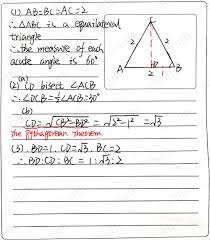 (1) AB=BC=AC=2
∴ △ABC is a equilateral
triangle
∴ the measure of each
acute angle is 60°
(a)
(2) CD bisect ∠ACB
∴ ∠DCB=½∠ACB=30°
(b)
CD=√(CB²-BD²) = √(2²-1²) = √3
The Pythagorean theorem
(3). BD=1. CD=√3. BC=2
∴ BD:CD:BC = 1:√3:2
2
2
A
2
D
B
1